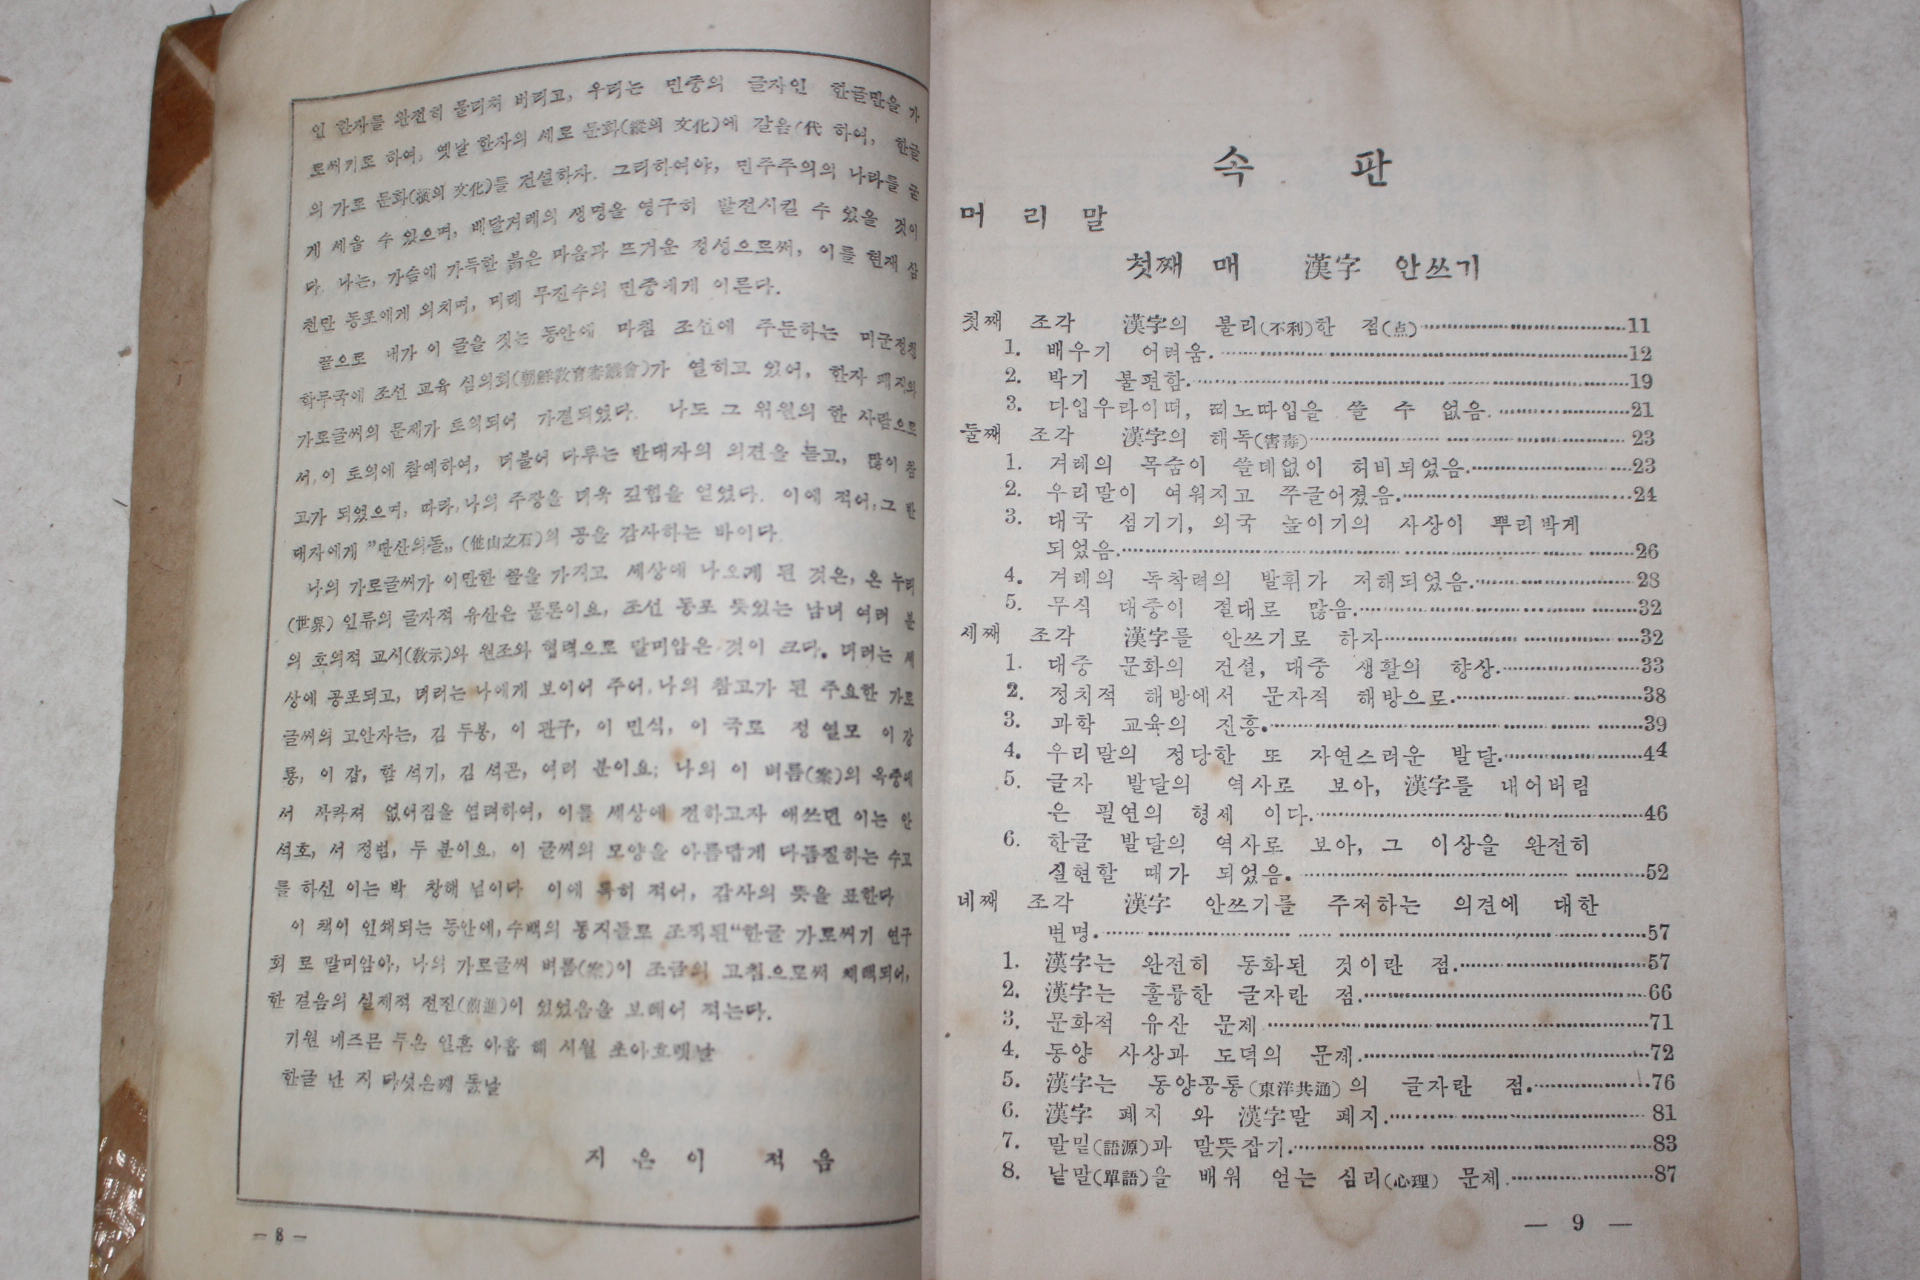 인 한자를 완전히 물리쳐 버리고, 우리는 민중의 글자인 한글만을 가
로씨기로 하여, 옛날 한자의 세로 문화(縱의 文化)에 갈음(代 하여, 한글
의 가로 문화(橫의 文化)를 건설하자. 그리하여야, 민주주의의 나라를 굳
게 세울 수 있으며, 배달겨레의 생명을 영구히 발전시킬 수 있을 것이
다. 나는, 가슴에 가득한 붉은 마음과 뜨거운 정성으로써, 이를 현재 삼
천만 동포에게 외치며, 미래 무진수의 민중에게 이른다.
끝으로 내가 이 글을 짓는 동안에 마침 조선에 주둔하는 미군정청
학무국에 조선 교육 심의회(朝鮮敎育審議會)가 열히고 있어, 한자 폐지와
가로글씨의 문제가 토의되어 가결되었다. 나도 그 위원의 한 사람으로
서, 이 토의에 참예하여, 더불어 다루는 반대자의 의견을 듣고, 많이 참
고가 되었으며, 따라, 나의 주장을 더욱 깊힘을 얻었다. 이에 적어, 그 반
대자에게 "딴산의돌„ (他山之石)의 공을 감사하는 바이다.
나의 가로글씨가 이만한 꼴을 가지고 세상에 나오게 된 것은, 온 누리
(世界) 인류의 글자적 유산은 물론이요, 조선 동포 뜻있는 남녀 여러 분
의 호의적 교시(敎示)와 원조와 협력으로 말미암은 것이 크다. 더러는 세
상에 공포되고, 더러는 나에게 보이어 주어, 나의 참고가 된 주요한 가로
글씨의 고안자는, 김 두봉, 이 관구, 이 민식, 이 국로 정 열모 이 강
룡, 이 갑, 함 석기, 김 석곤, 여러 분이요; 나의 이 벼름(案)의 옥중에
서 사라져 없어짐을 염려하여, 이를 세상에 전하고자 애쓰면 이는 안
석호, 서 정범, 두 분이요, 이 글씨의 모양을 아름답게 다듬질하는 수고
를 하신 이는 박 창해 님이다 이에 특히 적어, 감사의 뜻을 표한다
이 책이 인쇄되는 동안에, 수백의 동지들로 조직된 "한글 가로씨기 연구
회 로 말미암아, 나의 가로글씨 벼름(案)이 조금의 고침으로써 채택되어,
한 걸음의 실제적 전진(前進)이 있었음을 보태어 적는다.
기원 네즈믄 두온 일흔 아홉 해 시월 초아흐렛날
한글 난 지 다섯온째 돐날
지 은 이 적 음
— 8 —
속 판
머 리 말
첫째 매 漢字 안쓰기
첫째 조각 漢字의 불리(不利)한 점(点) 11
1. 배우기 어려움. 12
2. 박기 불편함. 19
3. 다입우라이며, 띠노따입을 쓸 수 없음. 21
둘째 조각 漢字의 해독(害毒) 23
1. 겨레의 목숨이 쓸데없이 허비되었음. 23
2. 우리말이 여위지고 쭈글어졌음. 24
3. 대국 섬기기, 외국 높이기의 사상이 뿌리박게
되었음. 26
4. 겨레의 독착력의 발휘가 저해되었음. 28
5. 무식 대중이 절대로 많음. 32
세째 조각 漢字를 안쓰기로 하자 32
1. 대중 문화의 건설, 대중 생활의 향상. 33
2. 정치적 해방에서 문자적 해방으로. 38
3. 과학 교육의 진흥. 39
4. 우리말의 정당한 또 자연스러운 발달. 44
5. 글자 발달의 역사로 보아, 漢字를 내어버림
은 필연의 형세 이다. 46
6. 한글 발달의 역사로 보아, 그 이상을 완전히
실현할 때가 되었음. 52
네째 조각 漢字 안쓰기를 주저하는 의견에 대한
변명. 57
1. 漢字는 완전히 동화된 것이란 점. 57
2. 漢字는 훌륭한 글자란 점. 66
3. 문화적 유산 문제 71
4. 동양 사상과 도덕의 문제. 72
5. 漢字는 동양공통(東洋共通)의 글자란 점. 76
6. 漢字 폐지 와 漢字말 폐지. 81
7. 말밑(語源)과 말뜻잡기. 83
8. 낱말(單語)을 배워 얻는 심리(心理) 문제. 87
— 9 —